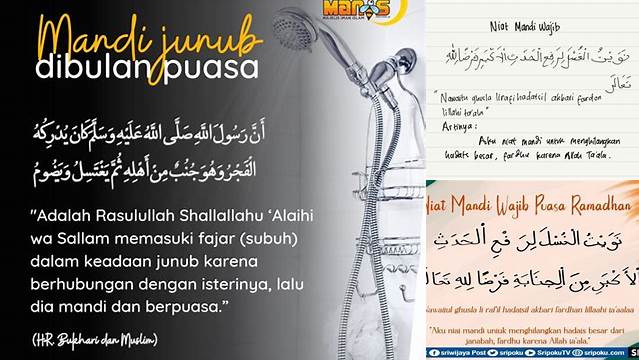 Manis
MAJELIS IMAN ISLAM
Mandi junub
dibulan puasa
أَنَّ رَسُولَ اللَّهِ صَلَّى اللَّهُ عَلَيْهِ وَسَلَّمَ كَانَ يُدْرِكُهُ
الْفَجْرُ وَهُوَ جُنُبٌ مِنْ أَهْلِهِ ثُمَّ يَغْتَسِلُ وَيَصُومُ
"Adalah Rasulullah Shallallahu ‘Alaihi
wa Sallam memasuki fajar (subuh)
dalam keadaan junub karena
berhubungan dengan isterinya, lalu
dia mandi dan berpuasa.”
(HR. Bukhari dan Muslim)
Niat Mandi Wajib
نَوَيْتُ الْغُسْلَ لِرَفْعِ الْحَدَثِ الْاَكْبَرِ فَرْضًا لِلّٰهِ
تَعَالَى
"Nawaitu ghusla lirafi hadatsil akbari fardan
lillahi ta'ala"
Artinya:
Aku niat mandi untuk menghilangkan
hadats besar, fardhu karena Allah Ta'ala.
Niat Mandi Wajib Puasa Ramadhan
نَوَيْتُ الْغُسْلَ لِرَفْعِ الْحَدَثِ
الْاَكْبَرِ مِنَ الْجِنَابَةِ فَرْضًا لِلّٰهِ تَعَالَى
Nawaitul ghusla li raf'il hadatsil akbari fardhan lillaahi ta'aalaa
"Aku niat mandi untuk menghilangkan hadais besar dari
janabah, fardhu karena Allah ta'ala."
Sriwijaya Post sripoku.com sripoku sripoku.com